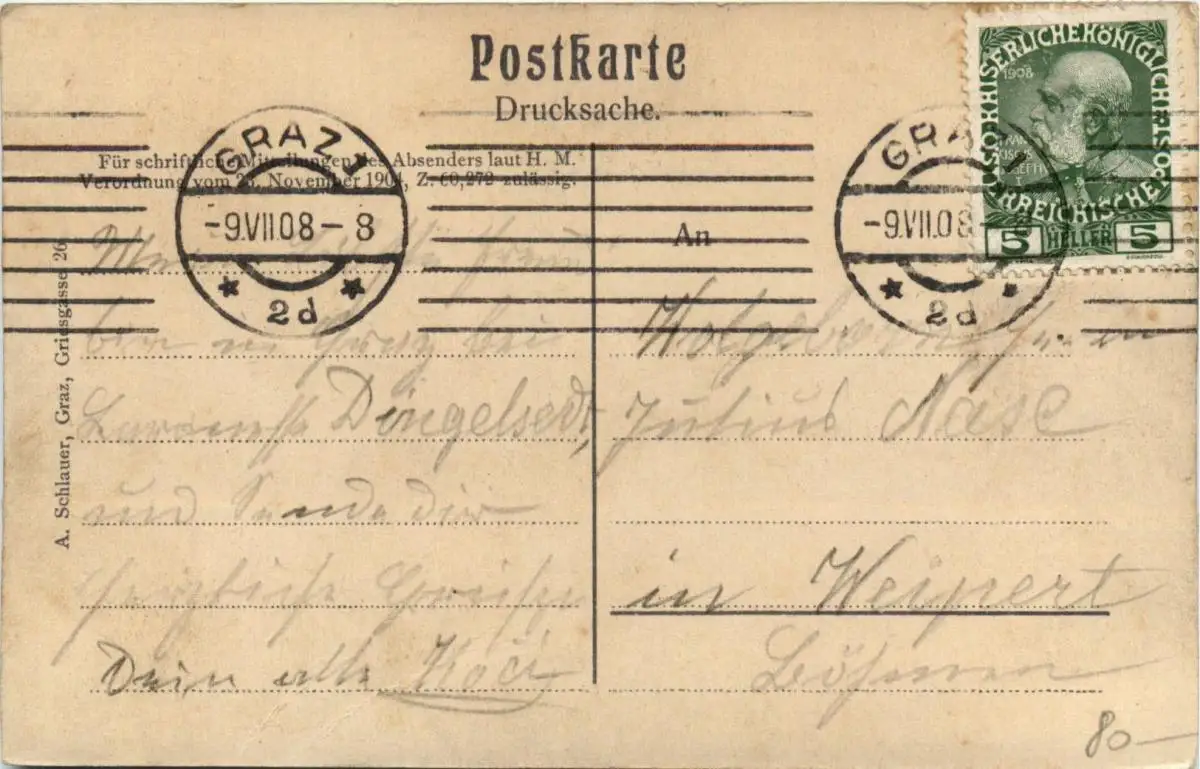 Postkarte
Drucksache.
Für schriftliche Mitteilungen des Absenders laut H. M.
Verordnung vom 25. November 1904, Z. 60,272 zulässig.
A. Schlauer, Graz, Griesgasse 26
GRAZ 1
-9.VII.08-8
* 2d *
GRAZ 1
-9.VII.08
* 2d *
KAISERLICHE KÖNIGLICHE ÖSTERREICHISCHE POST
1908
5 HELLER 5
bin in Graz bei
Dingelsedt,
und Sende dir
herzliche Grüße
Dein alte Koči
An
Julius Nase
in Weipert
Böhmen
80—